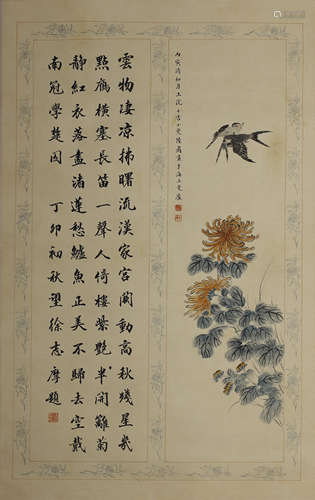 丙寅清和月上浣小曼陸眉畫于海上
雲物淒涼拂曙流漢家宮闕動高秋殘星幾
點鴈橫塞長笛一聲人倚樓紫艷半開籬菊
靜紅衣落盡渚蓮愁鱸魚正美不歸去空戴
南冠學楚囚 丁卯初秋望徐志摩題